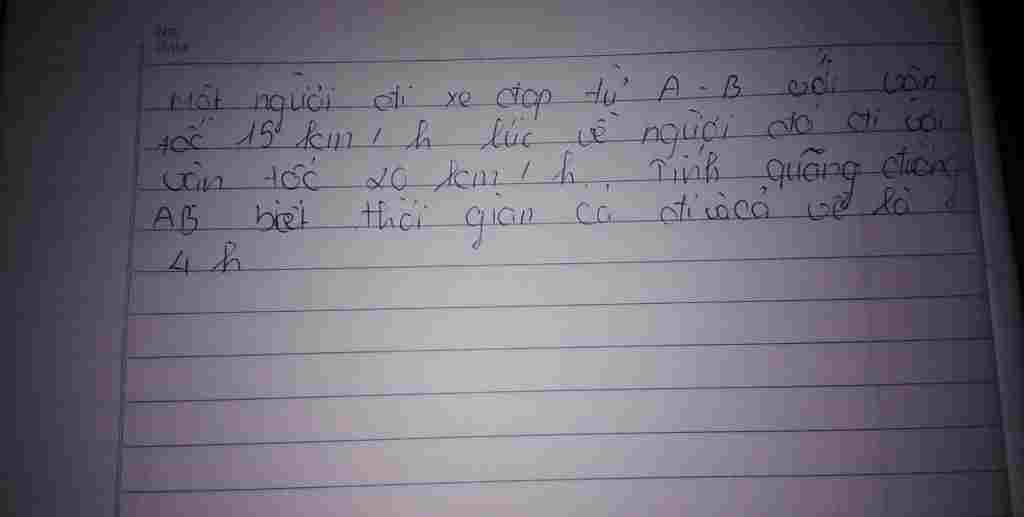 No.
Date
Một người đi xe đạp từ A - B với vận
tốc 15 km / h lúc về người đó đi với
vận tốc 20 km / h. Tính quãng đường
AB biết thời gian cả đi và cả về là
4 h